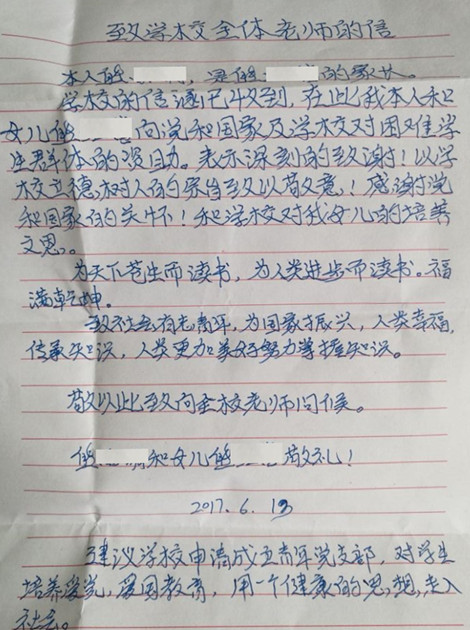 致学校全体老师的信
本人熊，是熊的家长。
学校的信函已收到，在此我本人和
女儿熊向党和国家及学校对困难学
生群体的资助。表示深刻的致谢！以学
校立德树人的家当致以敬意！感谢党
和国家的关怀！和学校对我女儿的培养
之恩。
为天下苍生而读书，为人类进步而读书。福
满乾坤。
致社会有志青年，为国家振兴，人类幸福，
传承知识，人类更加美好努力掌握知识。
敬以此致向全校老师问候。
熊和女儿熊敬礼！
2017.6.13
建议学校申请成立青年党支部，对学生
培养爱党，爱国教育，用一个健康的思想，走入
社会。